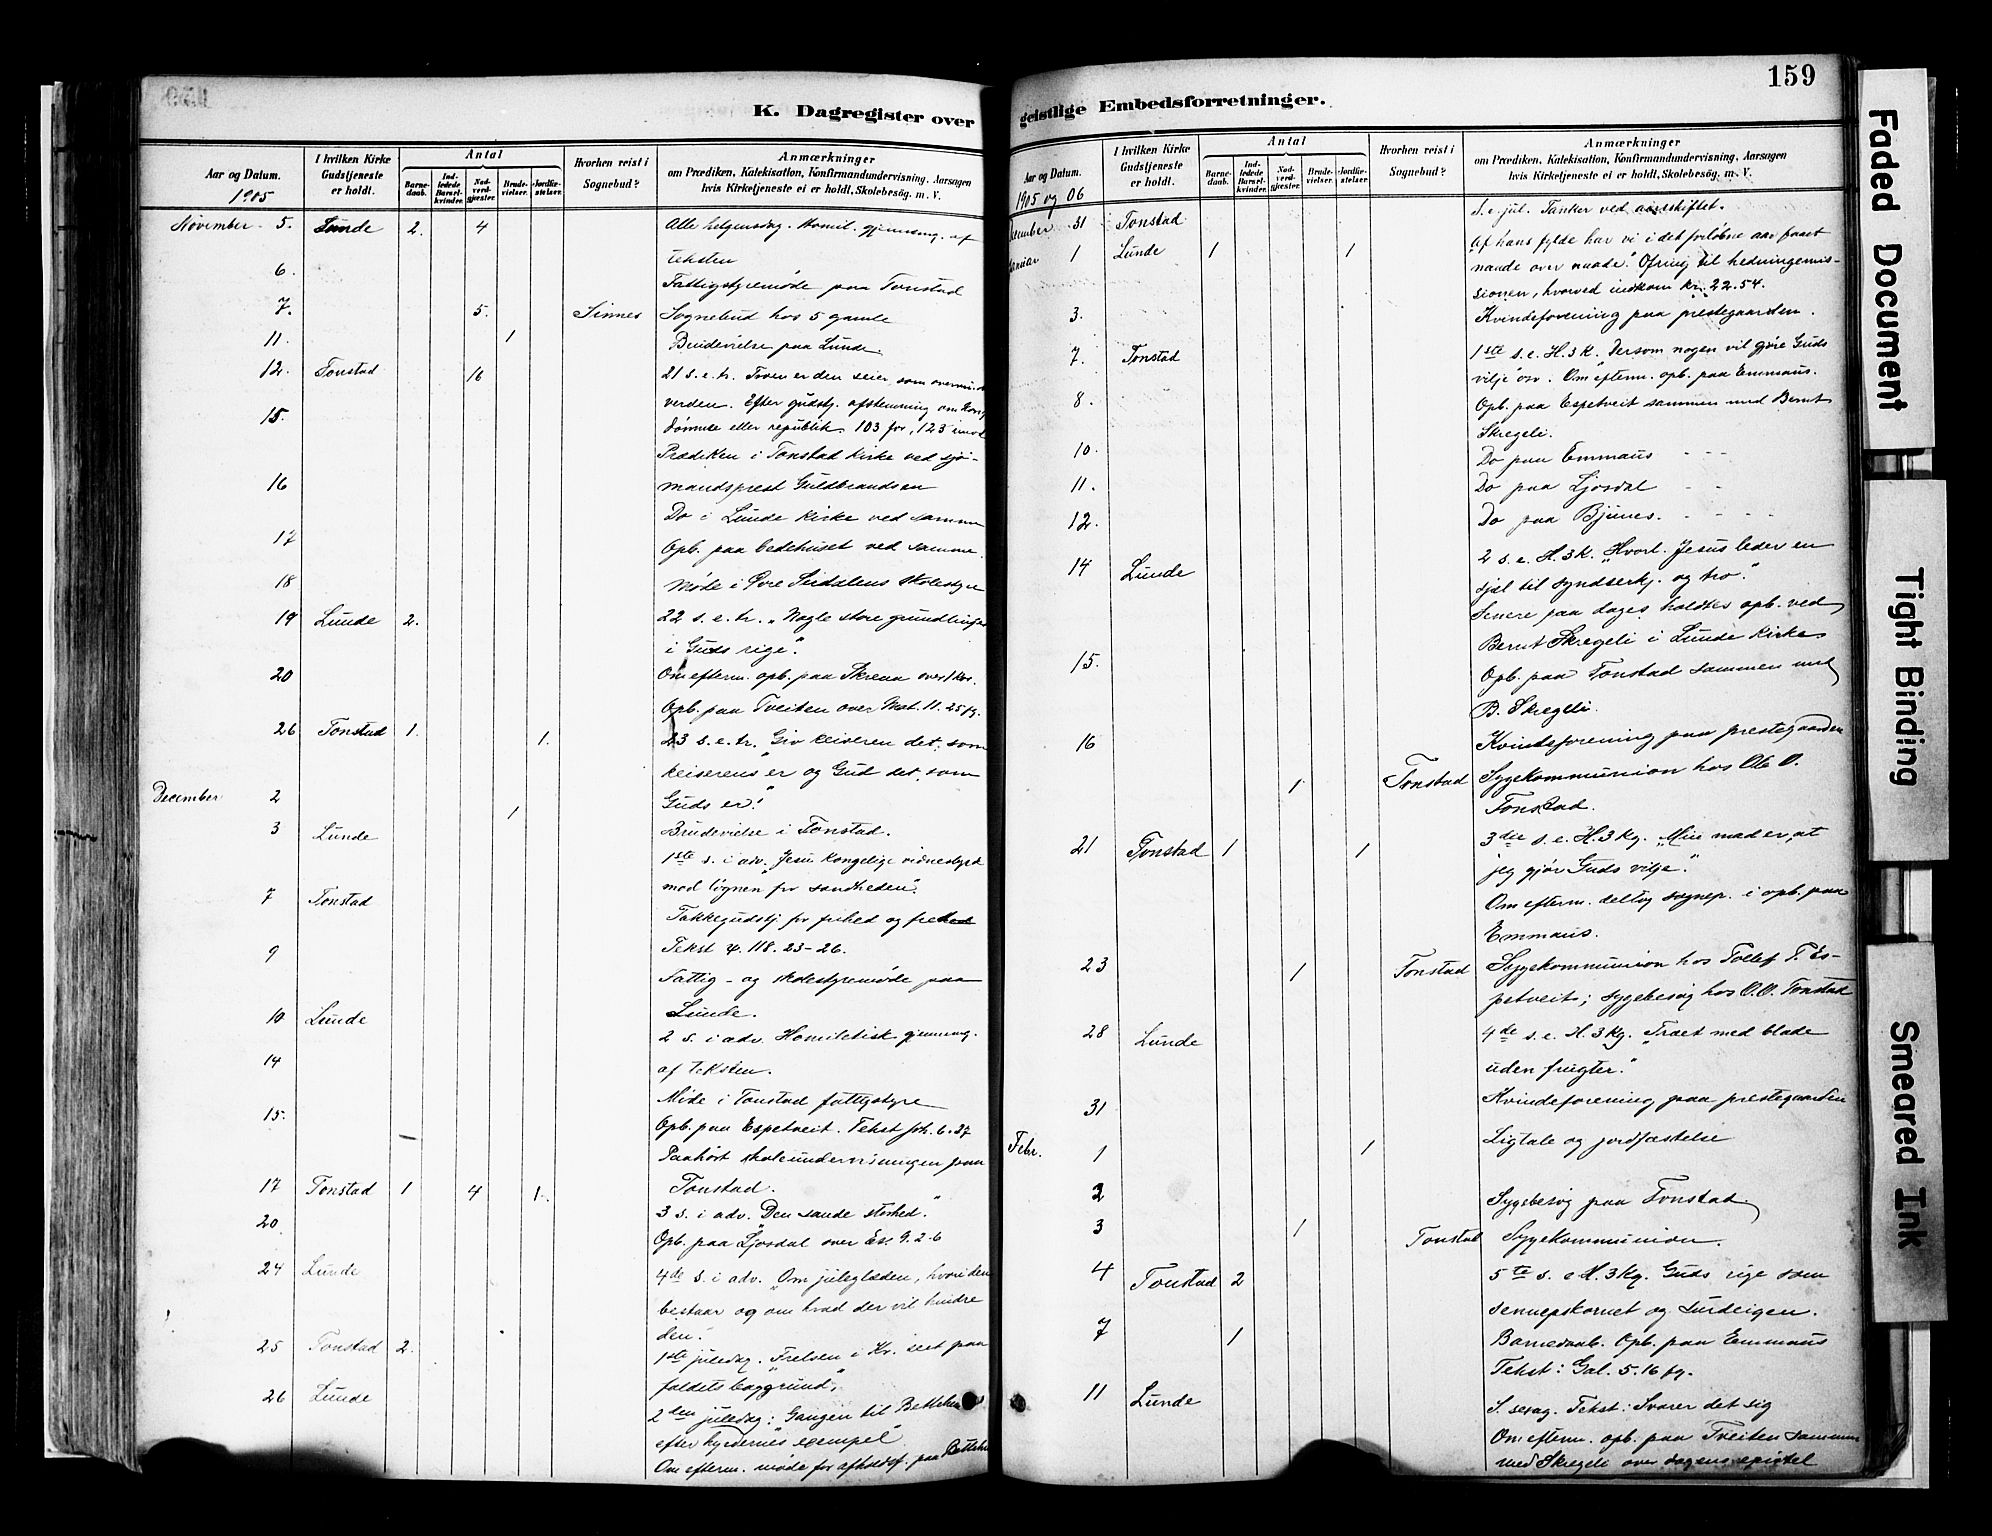 K. Dagregister over
Aar og Datum.
1905
I hvilken Kirke Gudstjeneste er holdt.
Antal
Barnedaab.
Indledede Barselkvinder.
Nadverdgjester.
Brudevielser.
Jordfæstelser.
Hvorhen reist i Sognebud?
Anmærkninger
om Prædiken, Katekisation, Konfirmandundervisning, Aarsagen
hvis Kirketjeneste ei er holdt, Skolebesøg, m. V.
November 5. Lunde 2. 4 Alle helgensdag. Homil. gjennemg. af
teksten
6. Fattigstyremøde paa Tonstad
7. 5. Sinnes Sognebud hos 5 gamle
11. 1 Brudevielse paa Lunde
12. Tonstad 16 21 s. e. tr. Troen er den seier, som
verden. Efter gudstj. afstemning om
eller republik 103 for, 123 imod
15. Prædiken i Tonstad kirke ved sjø-
mandsprest Guldbrandsen
16 Do i Lunde kirke ved samme
17 Opb. paa bedehuset ved samme
18 Møde i Øvre Sirdalens skolestyre
19 Lunde 2. 22 s. e. tr. „Nogle store
i Guds rige".
20 Om efterm. opb. paa Skreaa over 1 Kor.
Opb. paa Tveiten over Mat. 11. 25 fg.
26 Tonstad 1. 1. 23 s. e. tr. „Giv keiseren det, som
keiserens er og Gud det, som
Guds er!"
December 2 1 Brudevielse i Tonstad.
3 Lunde 1ste s. i adv. Jesu kongelige vidnesbyrd
mod løgnen for sandheden".
7 Tonstad Takkegudstj. for frihed og fred
Tekst ψ. 118. 23-26.
9 Fattig- og skolestyremøde paa
Lunde.
10 Lunde 2 s. i adv. Homiletisk gjennemg.
af teksten.
14 Møde i Tonstad fattigstyre
15. Opb. paa Espetveit. Tekst Joh. 6. 37
Paahørt skoleundervisningen paa
Tonstad.
17 Tonstad 1 4 1. 3 s. i adv. Den sande storhed."
20. Opb. paa Ljosdal over Es. 9. 2-6
24 Lunde 4de s. i adv. „Om juleglæden, hvori den
bestaar og om hvad der vil hindre
den."
25 Tonstad 2. 1ste juledag. „Frelsen i Kr. seet paa
faldets baggrund".
26 Lunde 2den juledag: Gangen til Betlehem
efter hyrdernes exempel"
Om efterm. møde for afholdsf. paa
159
geistlige Embedsforretninger.
Aar og Datum.
1905 og 06
I hvilken Kirke Gudstjeneste er holdt.
Antal
Barnedaab.
Indledede Barselkvinder.
Nadverdgjester.
Brudevielser.
Jordfæstelser.
Hvorhen reist i Sognebud?
Anmærkninger
om Prædiken, Katekisation, Konfirmandundervisning, Aarsagen
hvis Kirketjeneste ei er holdt, Skolebesøg, m. V.
31 Tonstad S. e. jul. Tanker ved aarsskiftet.
1 Lunde 1 1 „Af hans fylde har vi i det forløbne aar faaet
naade over naade." Ofring til hedningemis-
sionen, hvorved indkom kr. 22.54.
3. Kvindeforening paa prestegaarden.
7. Tonstad 1ste s. e. H. 3 K. Dersom nogen vil gjøre Guds
vilje osv. Om efterm. opb. paa Emmaus.
8. Opb. paa Espetveit sammen med Bernt
Skregeli.
10. Do paa Emmaus - - -
11. Do paa Ljosdal - -
12. Do paa Bjunes. - - - -
14 Lunde 2 s. e. H. 3 K. „Hvorl. Jesus leder en
sjæl til syndserkj. og tro."
Senere paa dagen holdtes opb. ved
Bernt Skregeli i Lunde kirke
15. Opb. paa Tonstad sammen med
B. Skregeli.
16 Kvindeforening paa prestegaarden
1 Tonstad Sygekommunion hos Ole O.
Tonstad.
21 Tonstad 1 1 3die s. e. H. 3 Kg. „Min mad er, at
jeg gjør Guds vilje".
Om efterm. deltog sognep. i opb. paa
Emmaus.
23 1 Tonstad Sygekommunion hos Tollef T. Es-
petveit; sygebesøg hos O. O. Tonstad
28 Lunde 4de s. e. H. 3 Kg. „Træet med blade
uden frugter."
31 Kvindeforening paa prestegaarden
Febr. 1 1 Ligtale og jordfæstelse
2 Sygebesøg paa Tonstad
3 1 Tonstad Sygekommunion.
4 Tonstad 2 5te s. e. H. 3 Kg. Guds rige som
sennepskornet og surdeigen.
7 1 Barnedaab. Opb. paa Emmaus
Tekst: Gal. 5. 16 fg.
11 Lunde S. sexag. Tekst: Svarer det sig
Om efterm. opb. paa Tveiten sammen
med Skregeli over dagens epistel
Faded Document
Tight Binding
Smeared Ink